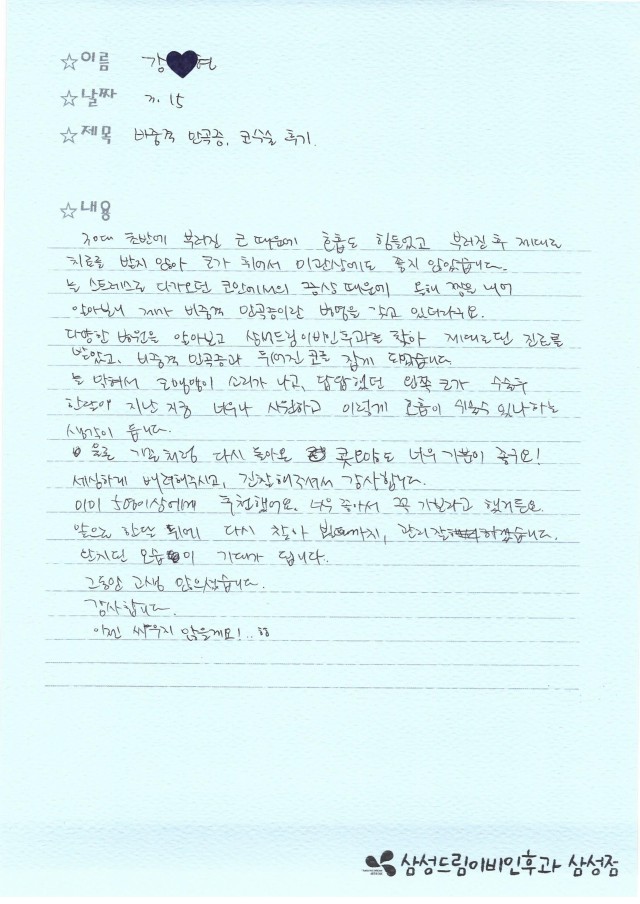 ☆이름 강♥현
☆날짜 7. 15
☆제목 비중격 만곡증, 코수술 후기.
☆내용
30대 초반에 부러진 코 때문에 호흡도 힘들었고 부러진 후 제대로
치료를 받지 않아 코가 휘어서 미관상에도 좋지 않았습니다.
늘 스트레스로 다가오던 코안에서의 증상 때문에 올해 짬을 내어
알아보니 제가 비중격 만곡증이란 병명을 갖고 있더라구요.
다양한 병원을 알아보고 삼성드림이비인후과를 찾아 제대로된 진료를
받았고, 비중격 만곡증과 휘어진 코를 잡게 되었습니다.
늘 막혀서 코맹맹이 소리가 나고, 답답했던 왼쪽 코가 수술후
한달이 지난 지금 너무나 시원하고 이렇게 호흡이 쉬울수 있나하는
생각이 듭니다.
기절처럼 다시 돌아온 콧모양도 너무 기분이 좋구요!
세심하게 배려해주시고, 긴장해주셔서 감사합니다.
이미 세명이상에게 추천했어요. 너무 좋아서 꼭 가보라고 했거든요.
앞으로 한달 뒤에 다시 찾아 뵐때까지, 관리잘하겠습니다.
달라진 모습이 기대가 됩니다.
그동안 고생 많으셨습니다.
감사합니다.
이젠 싸우지 않을게요!..ㅎㅎ
삼성드림이비인후과 삼성점